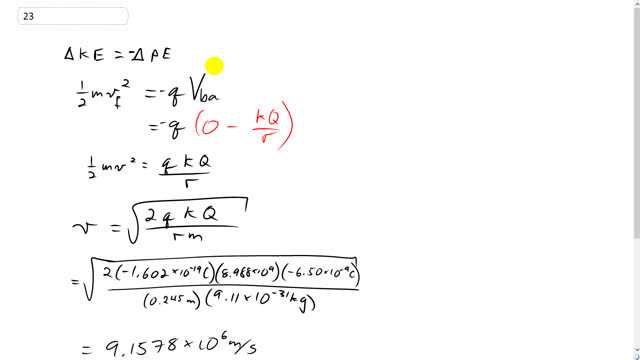 23
ΔKE = -ΔPE
1/2 m v_f^2 = -q V_ba
= -q (0 - kQ/r)
1/2 m v^2 = q k Q / r
v = √(2 q k Q / r m)
= √(2(-1.602×10^-19 C)(8.988×10^9)(-6.50×10^-9 C) / (0.245 m)(9.11×10^-31 kg))
= 9.1578×10^6 m/s